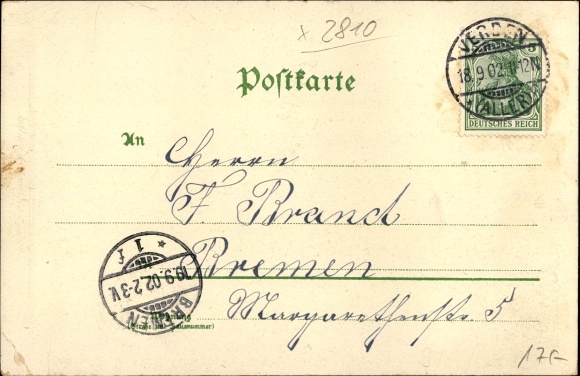 x 2810
Postkarte
VERDEN
18.9.02. 12N
(ALLER)
5
DEUTSCHES REICH
An
Herrn
F. Brandt
Bremen
Margarethenstr. 5
Wohnung
(Straße und Hausnummer)
BREMEN
19.9.02.2-3V.
* 1 f
17.-